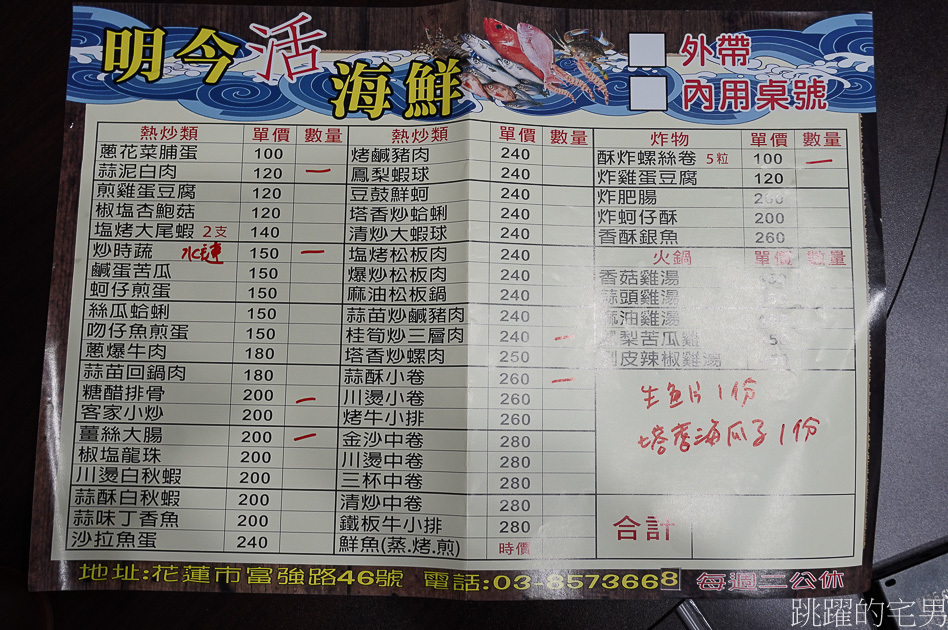 明今活海鮮
外帶
內用桌號
熱炒類 單價 數量
蔥花菜脯蛋 100
蒜泥白肉 120 一
煎雞蛋豆腐 120
椒塩杏鮑菇 120
塩烤大尾蝦 2支 140
炒時蔬 水蓮 150 一
鹹蛋苦瓜 150
蚵仔煎蛋 150
絲瓜蛤蜊 150
吻仔魚煎蛋 150
蔥爆牛肉 180
蒜苗回鍋肉 180
糖醋排骨 200 一
客家小炒 200
薑絲大腸 200 一
椒塩龍珠 200
川燙白秋蝦 200
蒜酥白秋蝦 200
蒜味丁香魚 200
沙拉魚蛋 240
熱炒類 單價 數量
烤鹹豬肉 240
鳳梨蝦球 240
豆鼓鮮蚵 240
塔香炒蛤蜊 240
清炒大蝦球 240
塩烤松板肉 240
爆炒松板肉 240
麻油松板鍋 240
蒜苗炒鹹豬肉 240
桂筍炒三層肉 240 一
塔香炒螺肉 250
蒜酥小卷 260 一
川燙小卷 260
烤牛小排 260
金沙中卷 280
川燙中卷 280
三杯中卷 280
清炒中卷 280
鐵板牛小排 280
鮮魚(蒸.烤.煎) 時價
炸物 單價 數量
酥炸螺絲卷 5粒 100 一
炸雞蛋豆腐 120
炸肥腸
炸蚵仔酥 200
香酥銀魚 260
火鍋 單價 數量
香菇雞湯
蒜頭雞湯
麻油雞湯
鳳梨苦瓜雞
剝皮辣椒雞湯
生魚片1份
塔香海瓜子1份
合計
地址:花蓮市富強路46號 電話:03-8573668 每週二公休
跳躍的宅男